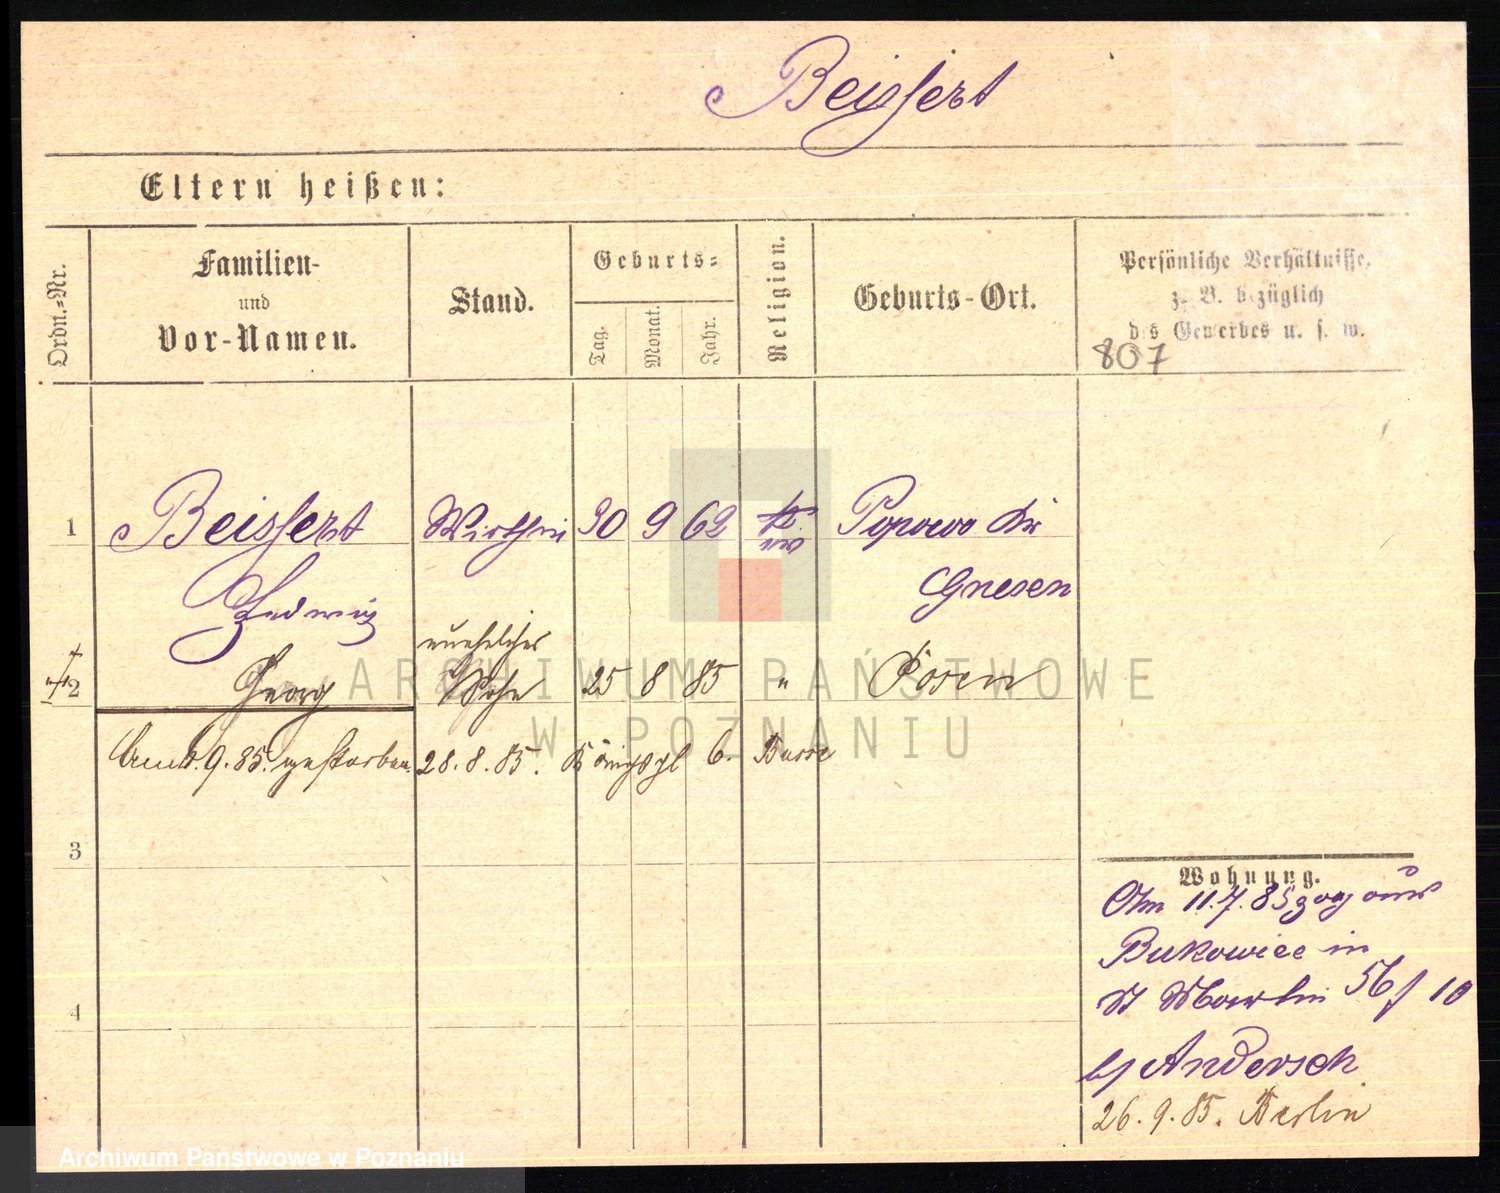 Beissert
Eltern heißen:
Ordn.-Nr.
Familien-
und
Vor-Namen.
Stand.
Geburts-
Tag.
Monat.
Jahr.
Religion.
Geburts-Ort.
Persönliche Verhältnisse,
z. B. bezüglich
des Gewerbes u. s. w.
807
1 Beissert Wirthin 30 9 62 Popowo Kr
Gnesen
Hedwig
uneheliches
2 Georg 25 8 85 " Posen
9. 85. gestorben. 28. 8. 85. 6.
3
4
Wohnung.
Am 11.7.85 zog aus
Bukowiec in
St Martin 56 / 10
b/ Andersch
26. 9. 85. Berlin
ARCHIWUM PAŃSTWOWE
W POZNANIU
Archiwum Państwowe w Poznaniu